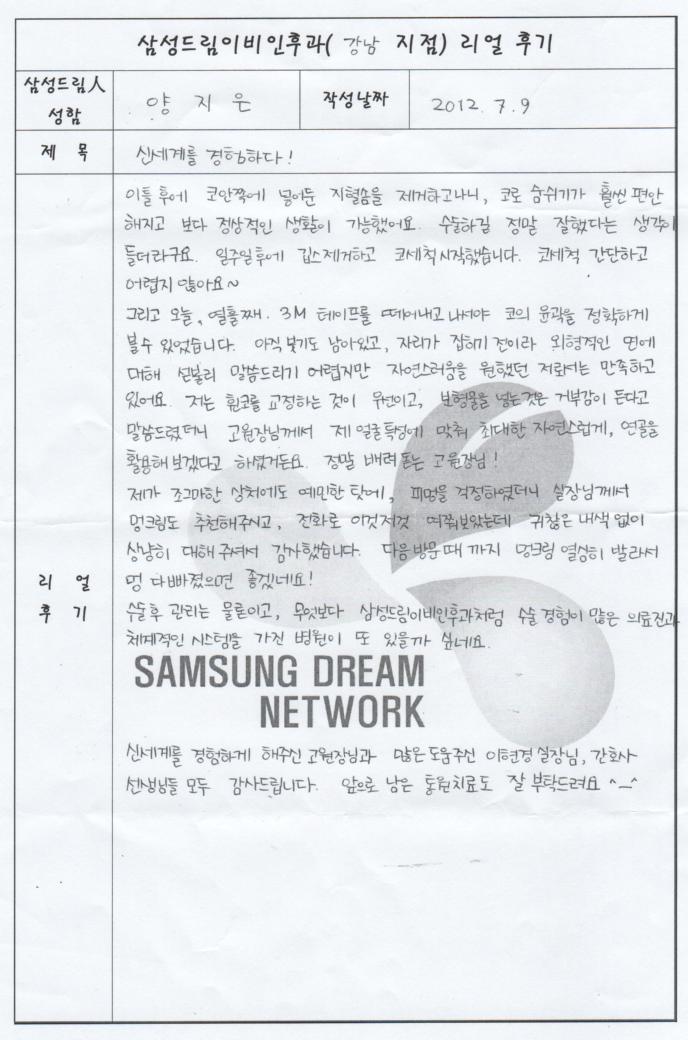 삼성드림이비인후과( 강남 지점) 리얼 후기
삼성드림人 성함
양 지 은
작성날짜
2012. 7. 9
제 목
신세계를 경험하다!
리 얼 후 기
이틀 후에 코안쪽에 넣어둔 지혈솜을 제거하고나니, 코로 숨쉬기가 훨씬 편안
해지고 보다 정상적인 생활이 가능했어요. 수술하길 정말 잘했다는 생각이
들더라구요. 일주일후에 깁스제거하고 코세척 시작했습니다. 코세척 간단하고
어렵지 않아요~
그리고 오늘, 열흘째. 3M 테이프를 떼어내고 나서야 코의 윤곽을 정확하게
볼수 있었습니다. 아직 붓기도 남아있고, 자리가 잡히기 전이라 외형적인 면에
대해 섣불리 말씀드리기 어렵지만 자연스러움을 원했던 저로서는 만족하고
있어요. 저는 휜코를 교정하는 것이 우선이고, 보형물을 넣는것은 거부감이 든다고
말씀드렸더니 고원장님께서 제 얼굴특성에 맞춰 최대한 자연스럽게, 연골을
활용해보겠다고 하셨거든요. 정말 배려 돋는 고원장님!
제가 조그마한 상처에도 예민한 탓에, 피멍을 걱정하였더니 실장님께서
멍크림도 추천해주시고, 전화로 이것저것 여쭤보았는데 귀찮은 내색 없이
상냥히 대해 주셔서 감사했습니다. 다음 방문때 까지 멍크림 열심히 발라서
멍 다 빠졌으면 좋겠네요!
수술후 관리는 물론이고, 무엇보다 삼성드림이비인후과처럼 수술 경험이 많은 의료진과
체계적인 시스템을 가진 병원이 또 있을까 싶네요.
SAMSUNG DREAM
NETWORK
신세계를 경험하게 해주신 고원장님과 많은 도움주신 이현경 실장님, 간호사
선생님들 모두 감사드립니다. 앞으로 남은 통원치료도 잘 부탁드려요 ^_^